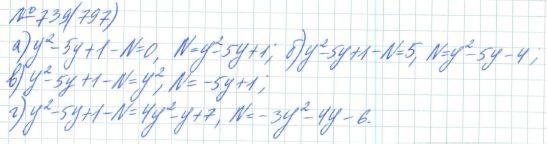 № 739(797)
а) y²-5y+1-N=0, N=y²-5y+1; б) y²-5y+1-N=5, N=y²-5y-4;
в) y²-5y+1-N=y², N=-5y+1;
г) y²-5y+1-N=4y²-y+7, N=-3y²-4y-6.